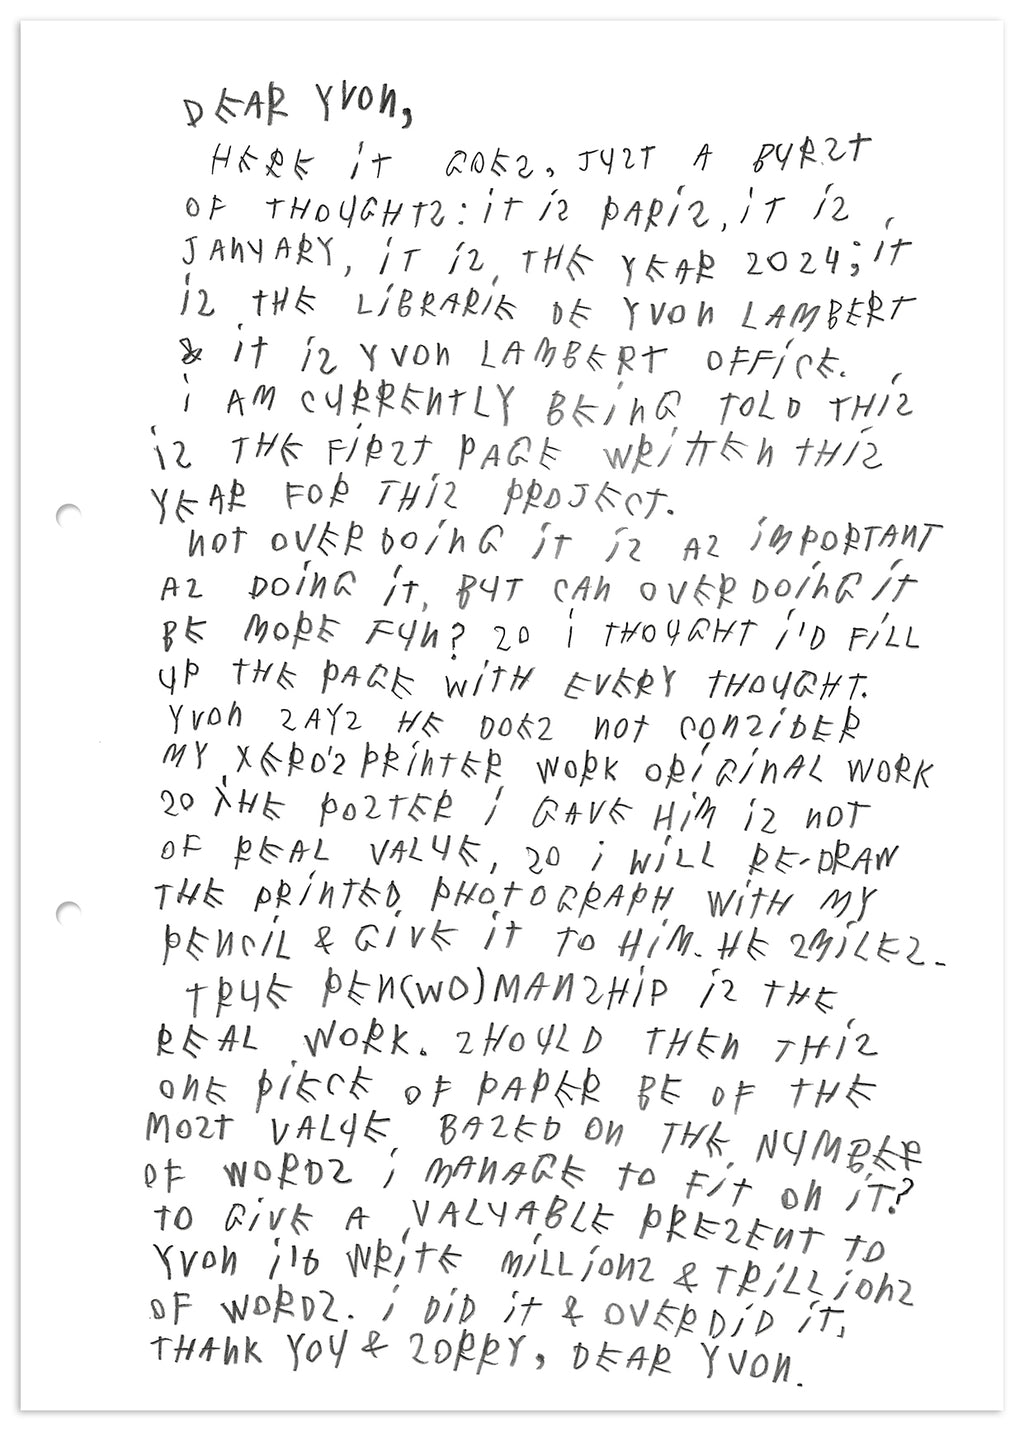 DEAR YVON,
HERE IT GOES, JUST A BURST
OF THOUGHTS: IT IS PARIS, IT IS
JANUARY, IT IS THE YEAR 2024; IT
IS THE LIBRARIE DE YVON LAMBERT
& IT IS YVON LAMBERT OFFICE.
I AM CURRENTLY BEING TOLD THIS
IS THE FIRST PAGE WRITTEN THIS
YEAR FOR THIS PROJECT.
NOT OVERDOING IT IS AS IMPORTANT
AS DOING IT, BUT CAN OVERDOING IT
BE MORE FUN? SO I THOUGHT I'D FILL
UP THE PAGE WITH EVERY THOUGHT.
YVON SAYS HE DOES NOT CONSIDER
MY XERO'S PRINTER WORK ORIGINAL WORK
SO THE POSTER I GAVE HIM IS NOT
OF REAL VALUE, SO I WILL RE-DRAW
THE PRINTED PHOTOGRAPH WITH MY
PENCIL & GIVE IT TO HIM. HE SMILES.
TRUE PEN(WO)MANSHIP IS THE
REAL WORK. SHOULD THEN THIS
ONE PIECE OF PAPER BE OF THE
MOST VALUE BASED ON THE NUMBER
OF WORDS I MANAGE TO FIT ON IT?
TO GIVE A VALUABLE PRESENT TO
YVON I'D WRITE MILLIONS & TRILLIONS
OF WORDS. I DID IT & OVERDID IT,
THANK YOU & SORRY, DEAR YVON.